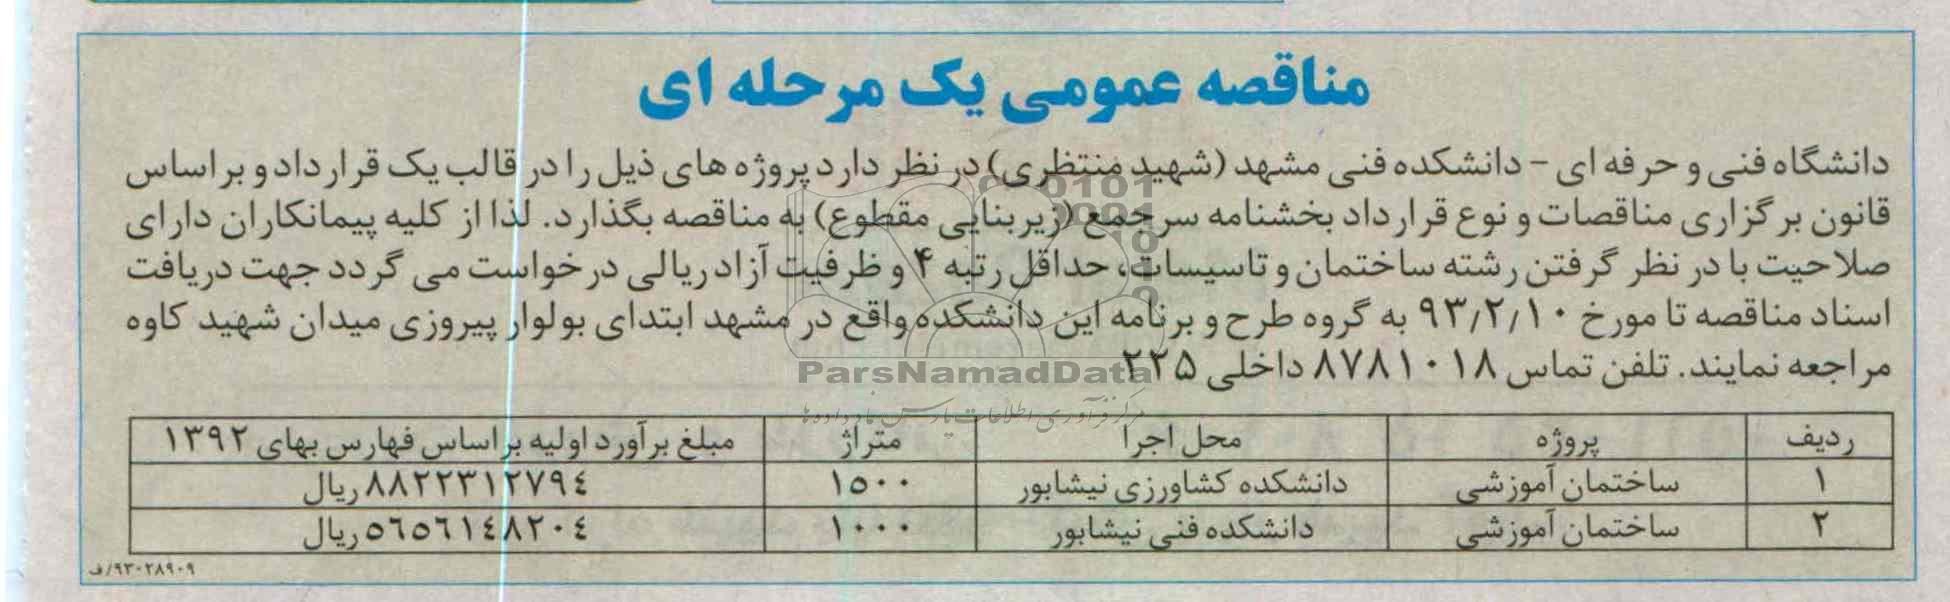 مناقصه عمومی یک مرحله ای
دانشگاه فنی و حرفه ای - دانشکده فنی مشهد (شهید منتظری) در نظر دارد پروژه های ذیل را در قالب یک قرارداد و براساس
قانون برگزاری مناقصات و نوع قرارداد بخشنامه سرجمع (زیربنایی مقطوع) به مناقصه بگذارد. لذا از کلیه پیمانکاران دارای
صلاحیت با در نظر گرفتن رشته ساختمان و تاسیسات، حداقل رتبه ۴ و ظرفیت آزاد ریالی درخواست می گردد جهت دریافت
اسناد مناقصه تا مورخ ۹۳/۲/۱۰ به گروه طرح و برنامه این دانشکده واقع در مشهد ابتدای بولوار پیروزی میدان شهید کاوه
مراجعه نمایند. تلفن تماس ۸۷۸۱۰۱۸ داخلی ۲۲۵
ParsNamadData
مرکز فرآوری اطلاعات پارس نماد داده ها
ردیف پروژه محل اجرا متراژ مبلغ برآورد اولیه براساس فهارس بهای ۱۳۹۲
۱ ساختمان آموزشی دانشکده کشاورزی نیشابور ۱۵۰۰ ۸۸۲۲۳۱۲۷۹٤ ریال
۲ ساختمان آموزشی دانشکده فنی نیشابور ۱۰۰۰ ٥٦٥٦۱٤۸۲۰٤ ریال
۹۳۰۲۸۹۰۹/ف